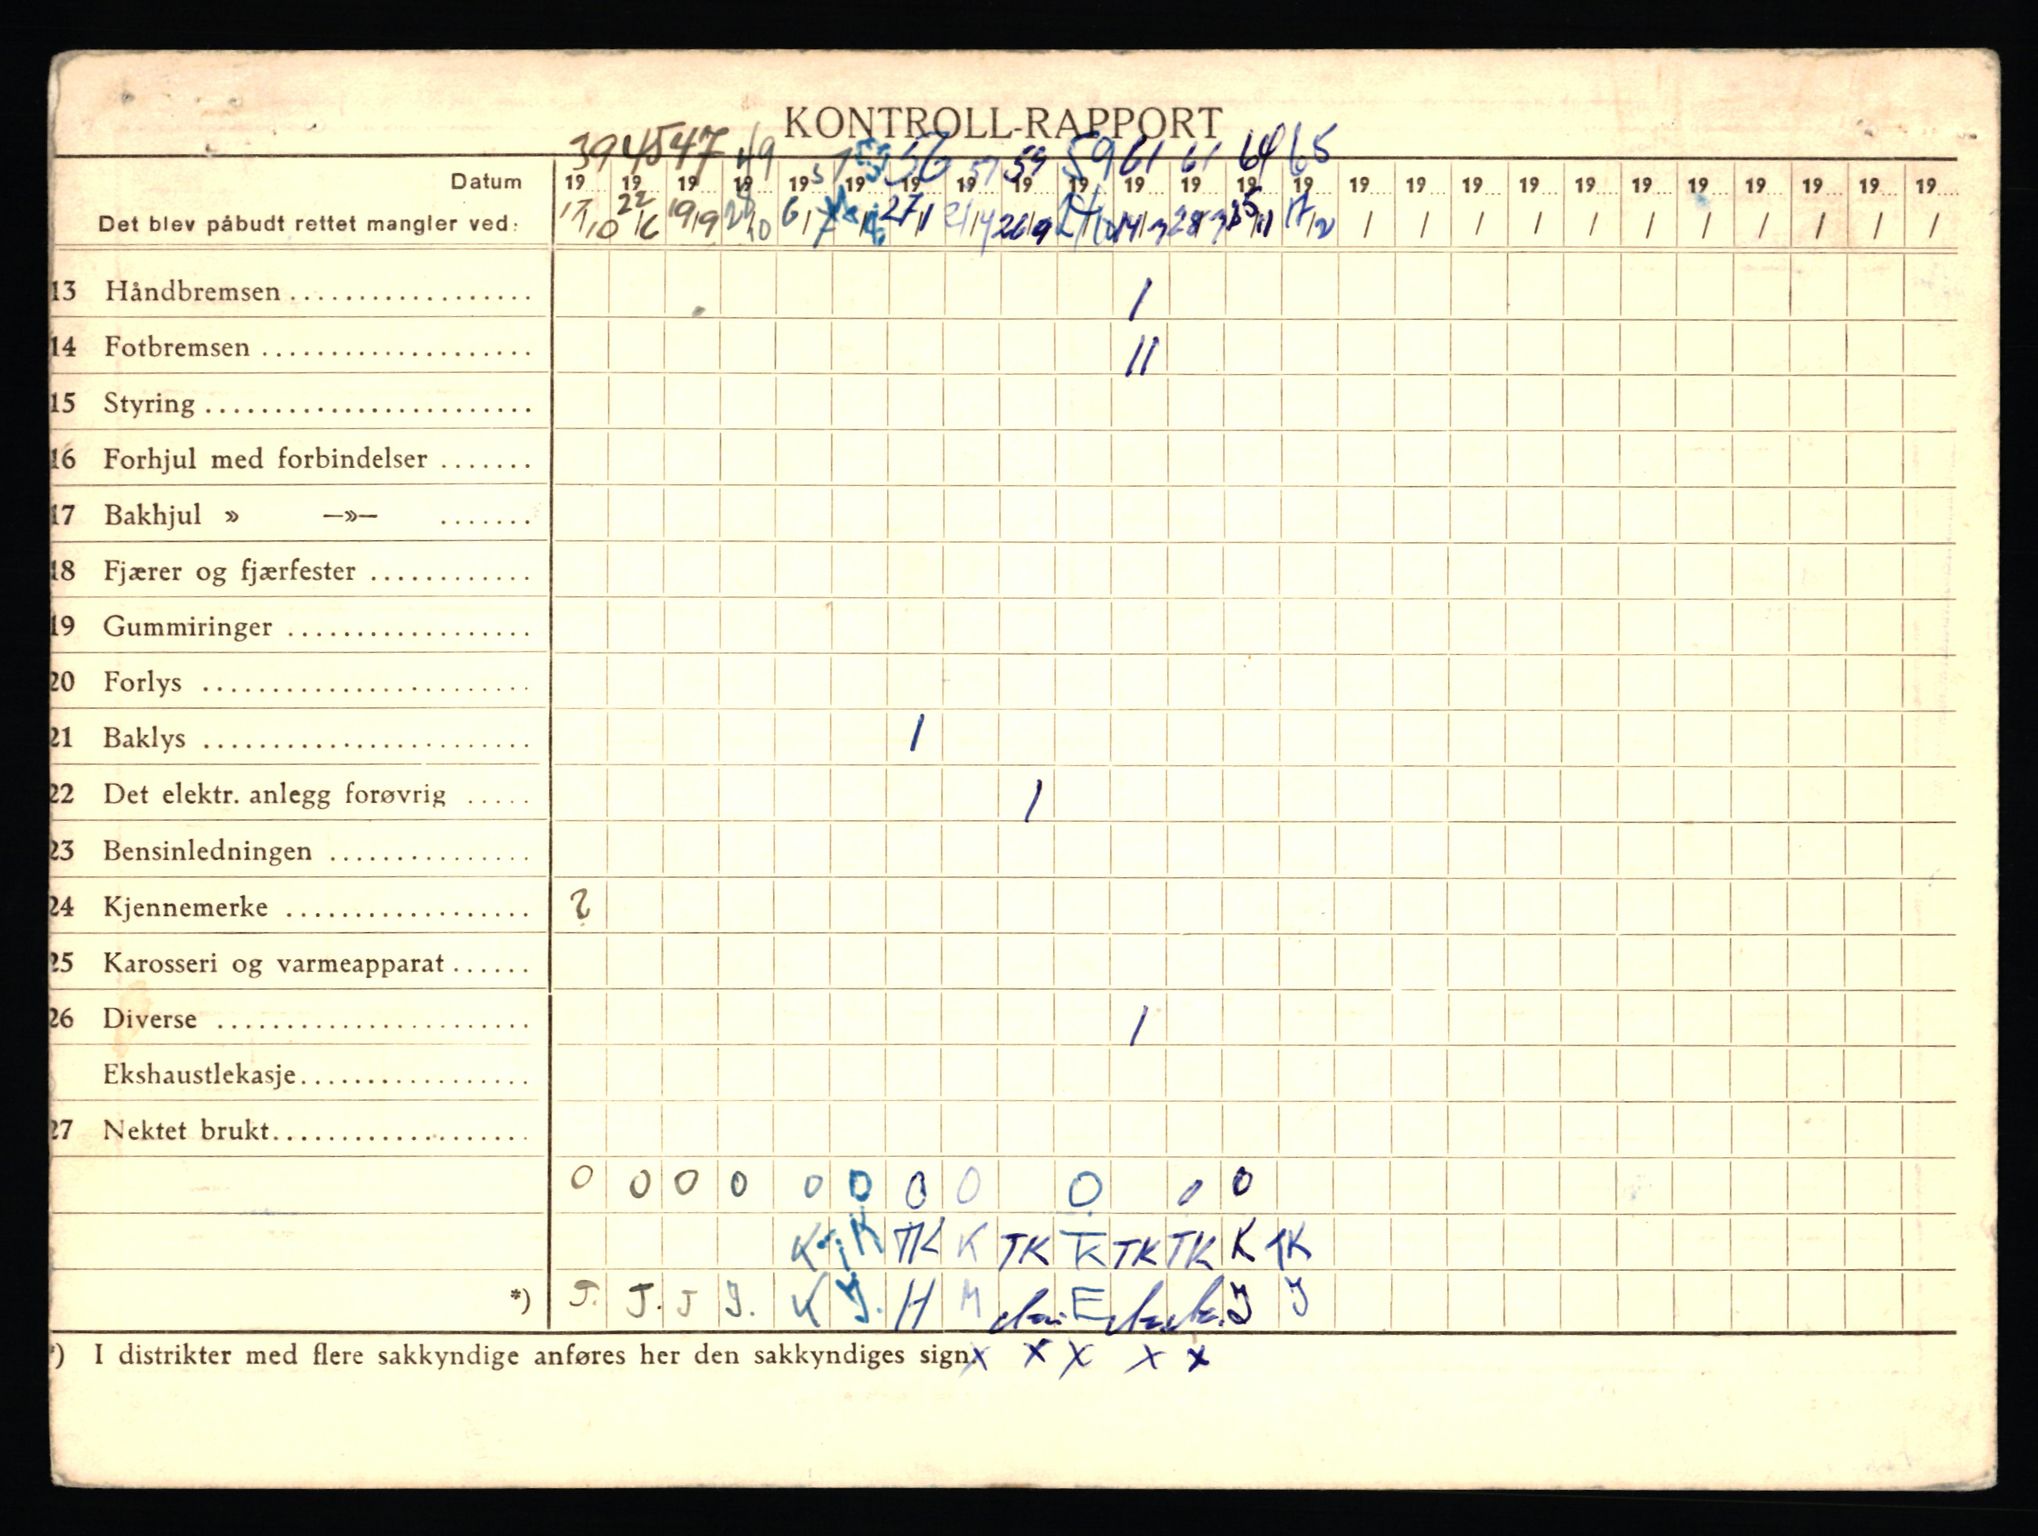 KONTROLL-RAPPORT
39 45 47 49 57 56 57 59 59 61 61 64 65
Datum 19 19 19 19 19 19 19 19 19 19 19 19 19 19 19 19 19 19 19 19 19 19 19 19 19
Det blev påbudt rettet mangler ved: 17/10 22/6 19/9 6/7 27/1 21/4 26/9 14/3 28/3 17/2 / / / / / / / / / / /
13 Håndbremsen /
14 Fotbremsen //
15 Styring
16 Forhjul med forbindelser
17 Bakhjul » —»—
18 Fjærer og fjærfester
19 Gummiringer
20 Forlys
21 Baklys /
22 Det elektr. anlegg forøvrig /
23 Bensinledningen
24 Kjennemerke ?
25 Karosseri og varmeapparat
26 Diverse /
Ekshaustlekasje
27 Nektet brukt
0 0 0 0 0 0 0 0 0 0 0
K K TK K TK TK TK TK K TK
*) J. J. J J. K J. H M E J J
*) I distrikter med flere sakkyndige anføres her den sakkyndiges sign. x x x x x